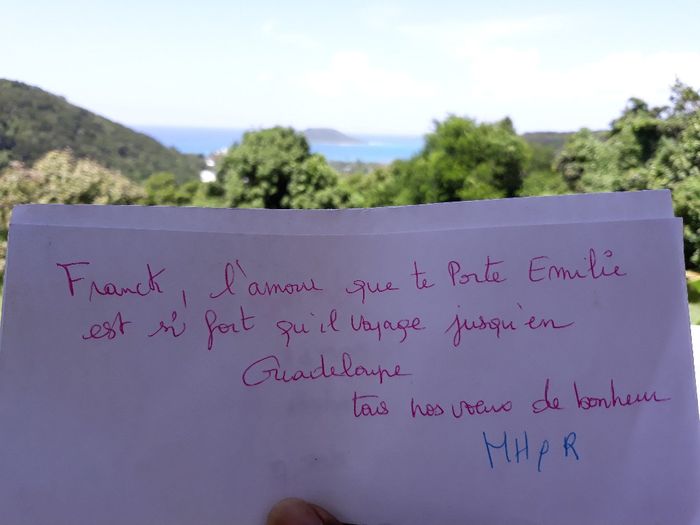 Franck, l'amour que te Porte Emilie
est si fort qu'il voyage jusqu'en
Guadeloupe
tous nos voeux de bonheur
MH & R